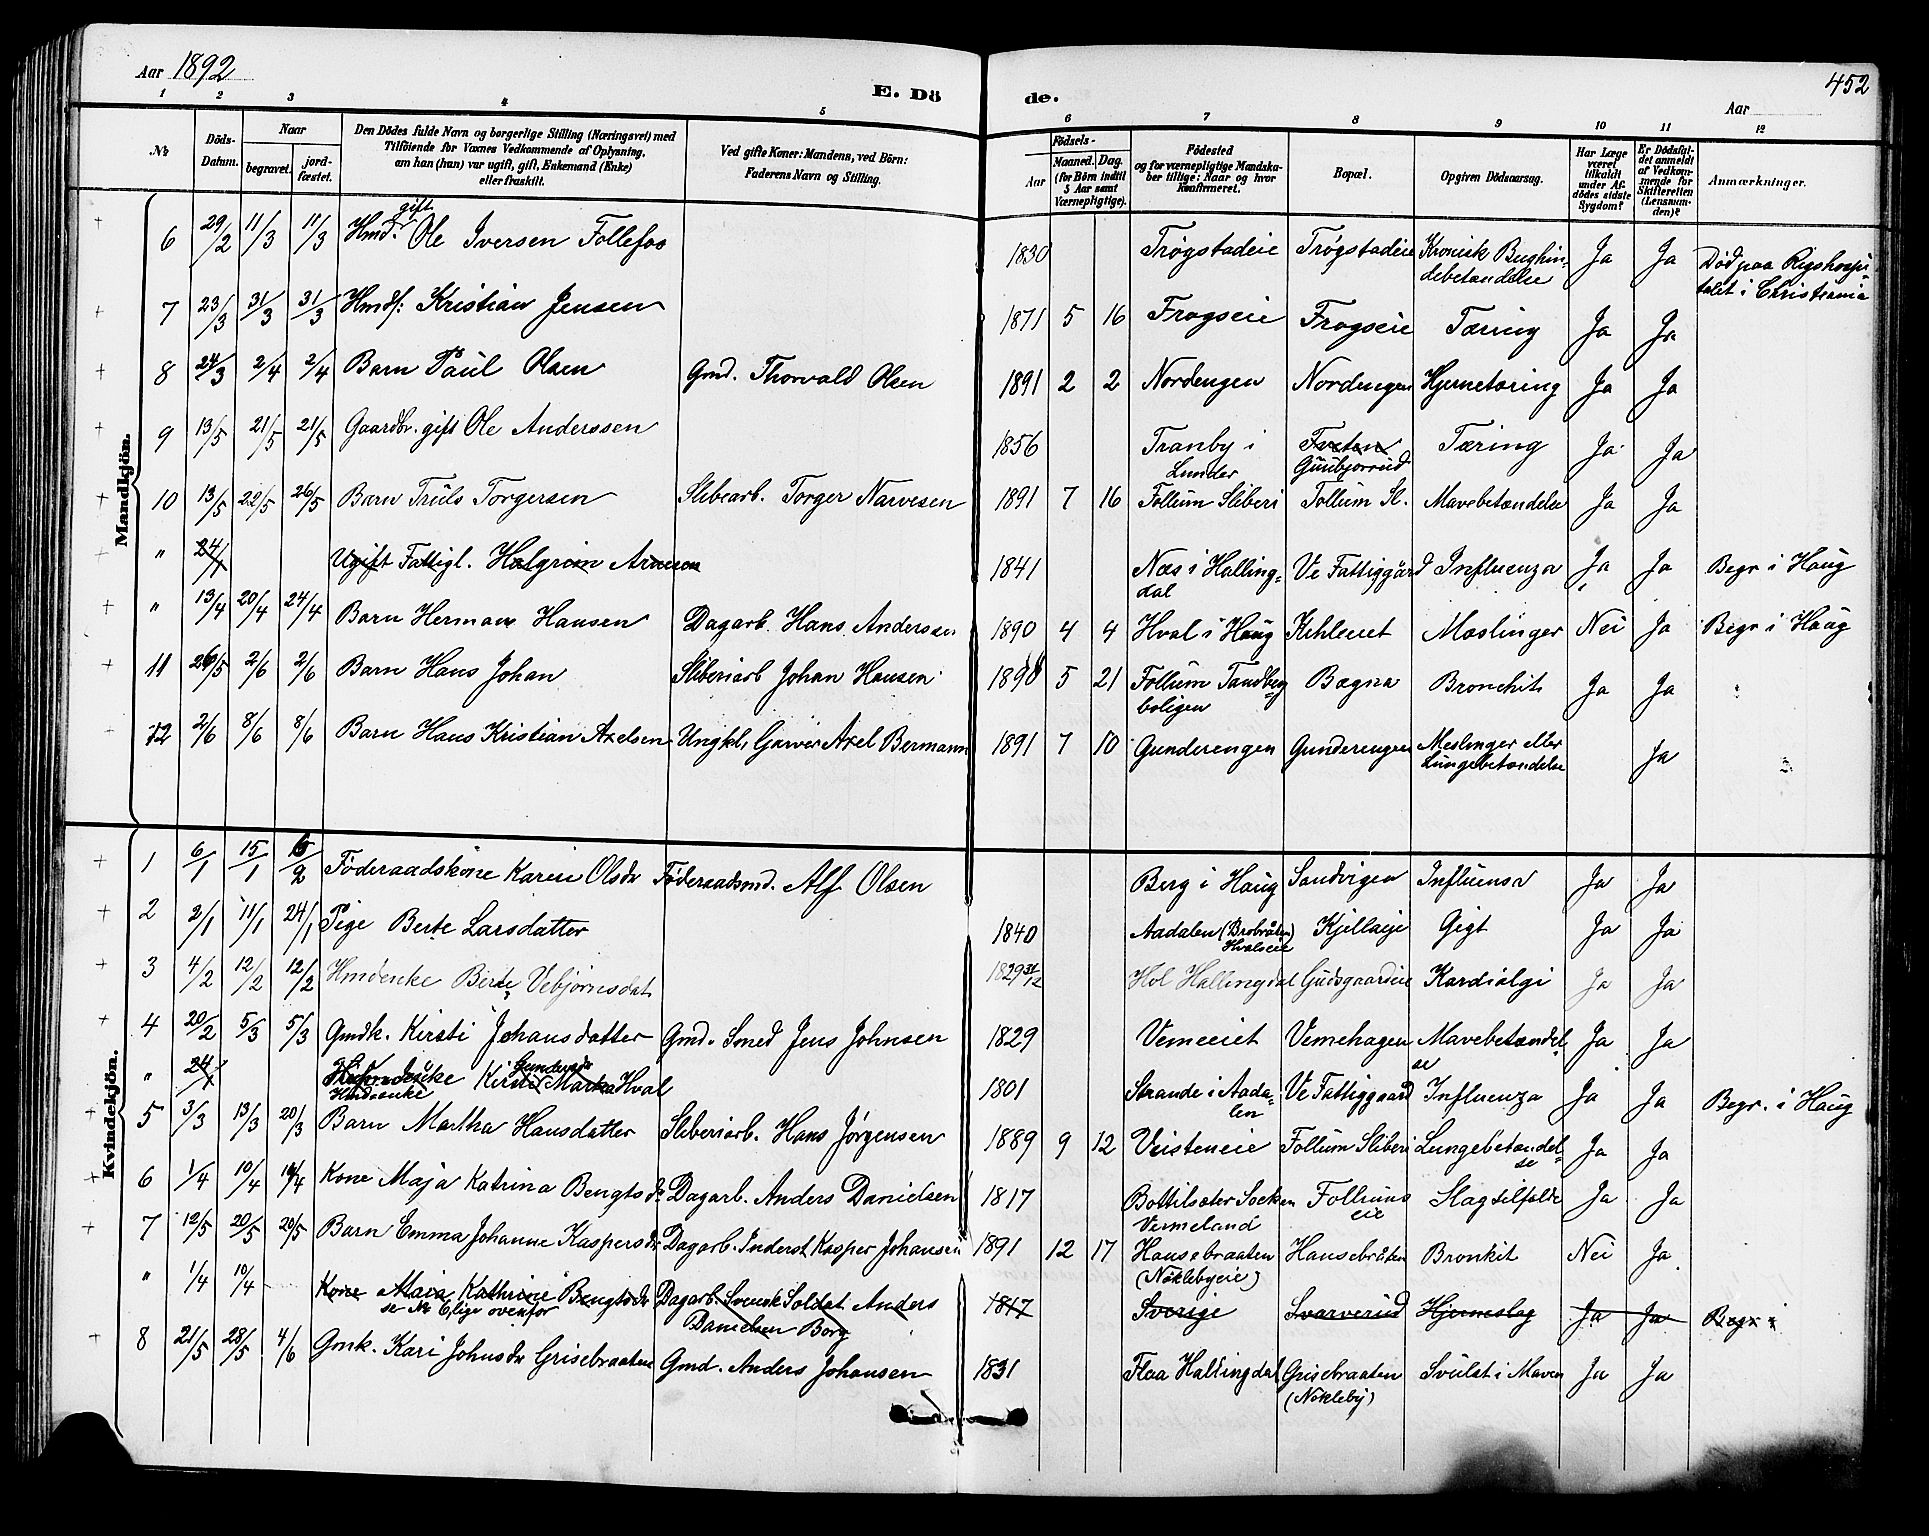 Aar 1892
E. Döde.
Aar
452
1 2 3 4 5 6 7 8 9 10 11 12
№
Döds-Datum.
Naar
begravet.
jordfæstet.
Den Dödes fulde Navn og borgerlige Stilling (Næringsvei) med
Tilföiende for Voxnes Vedkommende af Oplysning,
om han (hun) var ugift, gift, Enkemand (Enke)
eller fraskilt.
Ved gifte Koner: Mandens, ved Börn:
Faderens Navn og Stilling.
Födsels-
Aar
Maaned. Dag.
(for Börn indtil
5 Aar samt
Værnepligtige).
Födested
og for værnepligtige Mandska-
ber tillige: Naar og hvor
konfirmeret.
Bopæl.
Opgiven Dödsaarsag.
Har Læge
været
tilkaldt
under Af-
dödes sidste
Sygdom?
Er Dödsfal-
det anmeldt
af Vedkom-
mende for
Skifteretten
(Lensman-
den)?
Anmærkninger.
Mandkjön.
6 29/2 11/3 11/3 Hmd. gift Ole Iversen Follefos 1830 Trøgstadeie Trøgstadeie Kronisk Bughin-
debetændelse Ja Ja Död paa Rigshospi-
talet i Christiania
7 23/3 31/3 31/3 Hmdf. Kristian Jensen 1871 5 16 Frogseie Frogseie Tæring Ja Ja
8 24/3 2/4 2/4 Barn Paul Olsen Gmd. Thorvald Olsen 1891 2 2 Nordengen Nordengen Hjernetæring Ja Ja
9 13/5 21/5 21/5 Gaardbr. gift Ole Anderssen 1856 Tranby i
Lunder Tveten
Gunbjorrud Tæring Ja Ja
10 13/5 22/5 26/5 Barn Truls Torgersen Slibearb. Torger Narvesen 1891 7 16 Follum Sliberi Follum Sl. Mavebetændelse Ja Ja
" 24/1 Ugift Fattigl. Halgrim Arnesen 1841 Næs i Halling-
dal Ve Fattiggård Influenza Ja Ja Begr i Haug
" 13/4 20/4 24/4 Barn Herman Hansen Dagarb. Hans Anderssen 1890 4 4 Hval i Haug Kihleriet Mæslinger Nei Ja Begr i Haug
11 26/5 2/6 2/6 Barn Hans Johan Sliberiarb Johan Hansen 1890 5 21 Follum Tandberg
boligen Bægna Bronchit Ja Ja
12 2/6 8/6 8/6 Barn Hans Kristian Axelsen Ungkl. Garver Axel Bermann 1891 7 10 Gunderengen Gunderengen Meslinger eller
Lungebetændelse Ja
Kvindekjön.
1 6/1 15/1 15/2 Föderaadskone Karen Olsdr Föderaadsmd. Alf Olsen Berg i Haug Sandvigen Influensa Ja Ja
2 2/1 11/1 24/1 Pige Berte Larsdatter 1840 Aadalen (Brobråten)
Hvalseie Kjillaeie Gigt Ja Ja
3 4/2 12/2 12/2 Hmdenke Berte Vebjörnsdat. 1829 31/12 Hol Hallingdal Gudsgaardeie Kardialgi Ja Ja
4 20/2 5/3 5/3 Gmdk. Kirsti Johansdatter Gmd. Smed Jens Johnsen 1829 Vemeeiet Vemehagen Mavebetændel-
se Ja Ja
" 24/1 Hmdsenke Kirsti Gundersdr Marka Hval 1801 Strande i Aada-
len Ve Fattiggaard Influenza Ja Ja Begr. i Haug
5 3/3 13/3 20/3 Barn Martha Hansdatter Sliberiarb. Hans Jørgensen 1889 9 12 Veisteneie Follum Sliberi Lungebetændel-
se Ja Ja
6 1/4 10/4 10/4 Kone Maja Katrina Bengtsdr Dagarb. Anders Danielsen 1817 Bottilsæter Socken
Vermeland Follums
eie Slagtilfælde Ja Ja
7 12/5 20/5 20/5 Barn Emma Johanne Kaspersdr Dagarb. Inderst Kasper Johansen 1891 12 17 Hansebraaten
(Nöklebyeie) Hansebråten Bronkit Nei Ja
" 1/4 10/4 Kone Maia Kathrine Bengtsdr
se № 6 lige ovenfor Dagarb. Svensk Soldat Anders
Danielsen Borg 1817 Sverige Svarverud Hjerneslag Ja Ja Begr i
8 21/5 28/5 4/6 Gmk. Kari Johnsdr Grisebraaten Gmd. Anders Johansen 1831 Flaa Hallingdal Grisebraaten
(Nökleby) Svulst i Maven Ja Ja